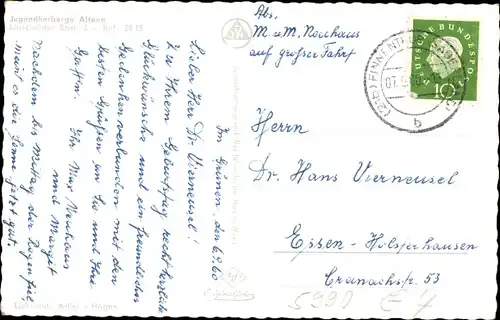 Jugendherberge Altena
Abs.
M. u. M. Neuhaus
auf großer Fahrt
DEUTSCHE BUNDESPOST
10
FINNENTROP
b
Herrn
Dr. Hans Vierneusel
Essen-Holsterhausen
Cranachstr. 53
Im Grünen, den 6.9.60
Lieber Herr Dr. Vierneusel!
Zu Ihrem Geburtstag recht herzliche
Glückwünsche und ein freundliches
Gedenken verbunden mit den
besten Grüßen an Sie und Ihre
Gattin. Ihr Max Neuhaus
und Margret
Nachdem bis Mittag der Regen fiel,
meint es die Sonne jetzt gut.
5930 E 4